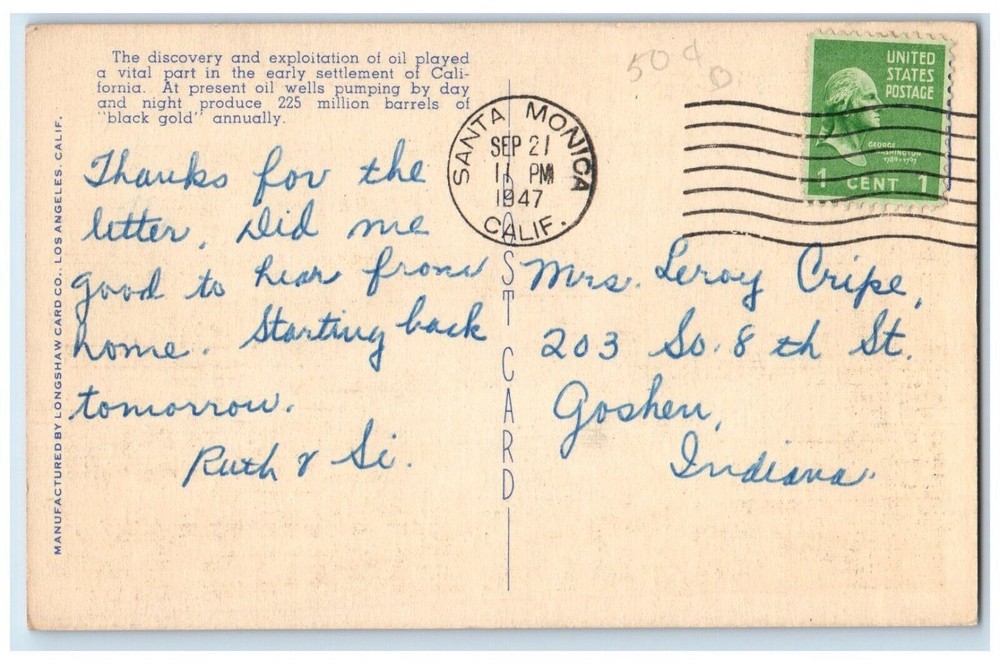 The discovery and exploitation of oil played
a vital part in the early settlement of Cali-
fornia. At present oil wells pumping by day
and night produce 225 million barrels of
"black gold" annually.
Thanks for the
letter. Did me
good to hear from
home. Starting back
tomorrow.
Ruth & Si.
MANUFACTURED BY LONGSHAW CARD CO., LOS ANGELES, CALIF.
POST CARD
50¢
SANTA MONICA
SEP 21
11 PM
1947
CALIF.
UNITED
STATES
POSTAGE
GEORGE
WASHINGTON
1789-1797
1 CENT 1
Mrs. Leroy Cripe,
203 So. 8th St.
Goshen,
Indiana.